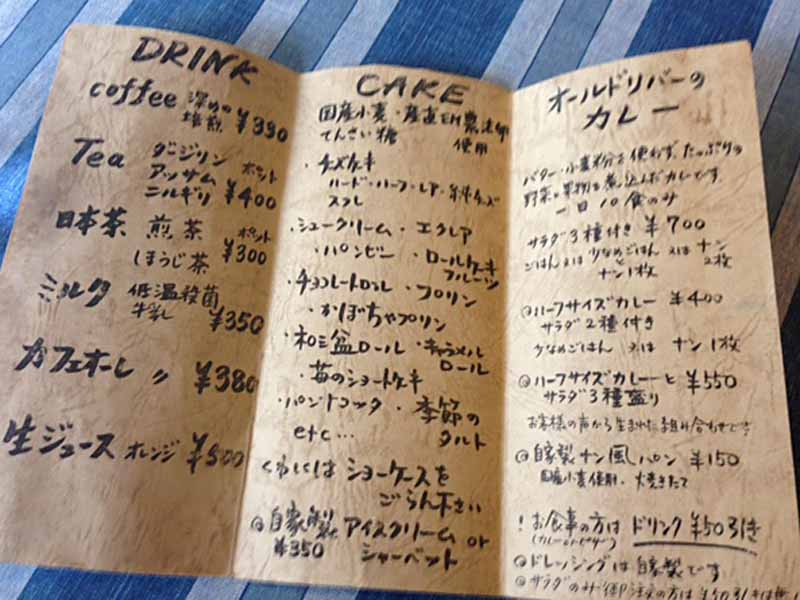 DRINK
coffee 深めの
焙煎 ¥390
Tea ダージリン
アッサム ポット
ニルギリ ¥400
日本茶 煎茶 ポット
ほうじ茶 ¥300
ミルク 低温殺菌
牛乳 ¥350
カフェオーレ 〃 ¥380
生ジュース オレンジ ¥500
CAKE
国産小麦・産直EM農法卵
てんさい糖 使用
・チーズケーキ
ハード・ハーフ・レア・
スフレ
・シュークリーム・エクレア
・パンピー・ロールケーキ
フルーツ
・チョコレートロール・プリン
・かぼちゃプリン
・和三盆ロール・キャラメル
ロール
・苺のショートケーキ
・パンナコッタ・季節の
タルト
etc…
くわしくは ショーケースを
ごらん下さい
◎自家製 アイスクリーム or
¥350 シャーベット
オールドリバーの
カレー
バター・小麦粉を使わず、たっぷりの
野菜と果物を煮込んだカレーです。
一日10食のみ
サラダ3種付き ¥700
ごはん又は少なめごはん 又は ナン
と 2枚
ナン1枚
◎ハーフサイズカレー ¥400
サラダ2種付き
少なめごはん 又は ナン1枚
◎ハーフサイズカレーと ¥550
サラダ3種盛り
お客様の声から生まれた組み合わせです
◎自家製ナン風パン ¥150
国産小麦使用・大焼きたて
! お食事の方は ドリンク ¥50引き
◎ドレッシングは自家製です
◎サラダのみ御注文の方は ¥50引きは